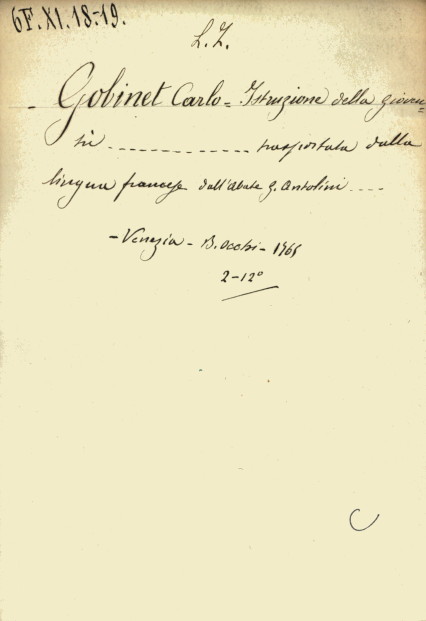 6F.XI.18-19.
L.Z.
- Gobinet Carlo = Istruzione della gioven-
tù ------------ trasportata dalla
lingua francese dall'Abate G. Antolini ----
- Venezia - B. Occhi - 1765
2-12°